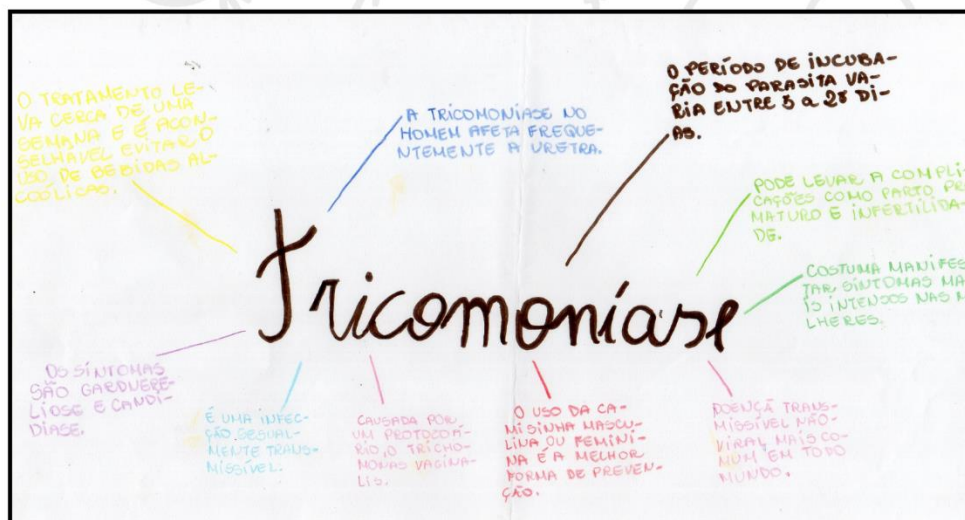 O TRATAMENTO LE-
VA CERCA DE UMA
SEMANA E É ACON-
SELHÁVEL EVITAR O
USO DE BEBIDAS AL-
COÓLICAS.
A TRICOMONÍASE NO
HOMEM AFETA FREQUE-
NTEMENTE A URETRA.
O PERÍODO DE INCUBA-
ÇÃO DO PARASITA VA-
RIA ENTRE 5 a 28 DI-
AS.
PODE LEVAR A COMPLI-
CAÇÕES COMO PARTO PR
MATURO E INFERTILIDA-
DE.
COSTUMA MANIFES
TAR SÍNTOMAS MA
IS INTENSOS NAS M
LHERES.
Tricomoníase
OS SÍNTOMAS
SÃO GARDUERE-
LIOSE E CANDI-
DIASE.
É UMA INFEC-
ÇÃO SEXUAL-
MENTE TRANS-
MISSÍVEL.
CAUSADA POR
UM PROTOZOÁ-
RIO, O TRICHO-
MONAS VAGINA-
LIS.
O USO DA CA-
MISINHA MASCU-
LINA OU FEMINI-
NA É A MELHOR
FORMA DE PREVEN-
ÇÃO.
DOENÇA TRANS-
MISSÍVEL NÃO-
VIRAL MAIS CO-
MUM EM TODO
MUNDO.